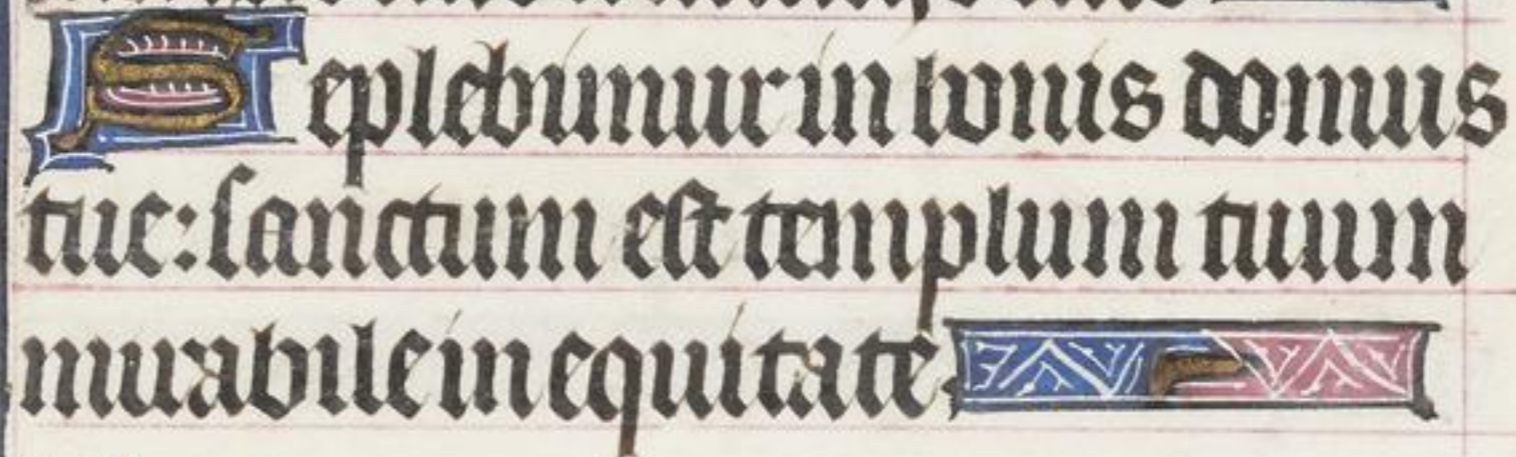 Seplebimur in bonis domus
tue: sanctum est templum tuum
mirabile in equitate